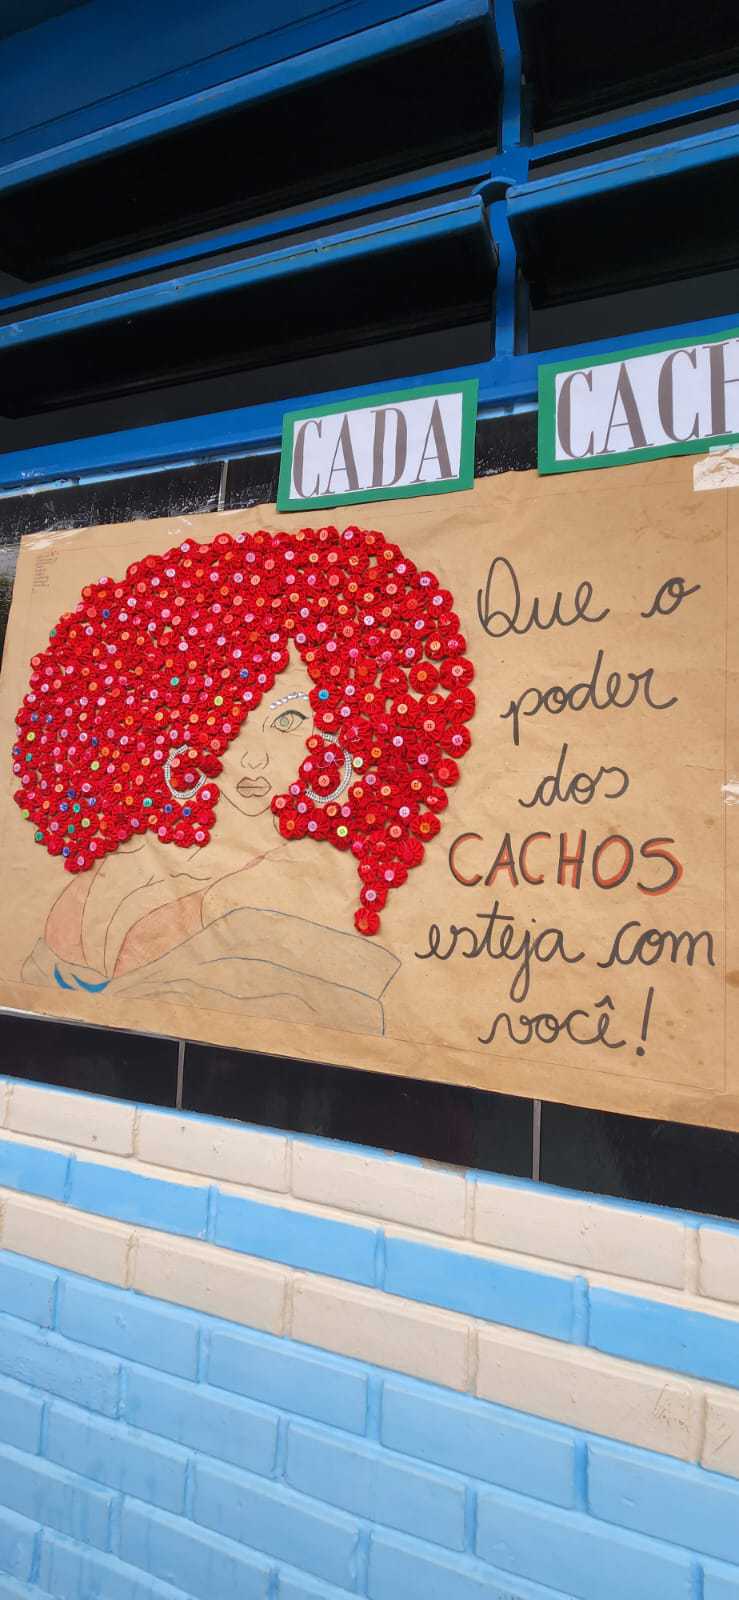 CADA CACH
Que o
poder
dos
CACHOS
esteja com
você!